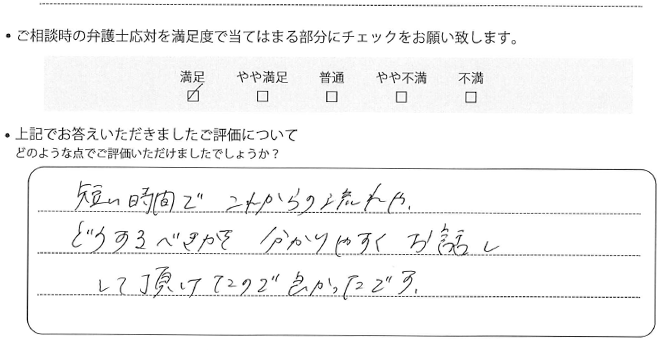 ・ご相談時の弁護士応対を満足度で当てはまる部分にチェックをお願い致します。
満足 やや満足 普通 やや不満 不満
☑ □ □ □ □
・上記でお答えいただきましたご評価について
どのような点でご評価いただけましたでしょうか？
短い時間で これからの流れや、
どうするべきかを 分かりやすく お話し
して頂けたので良かったです。